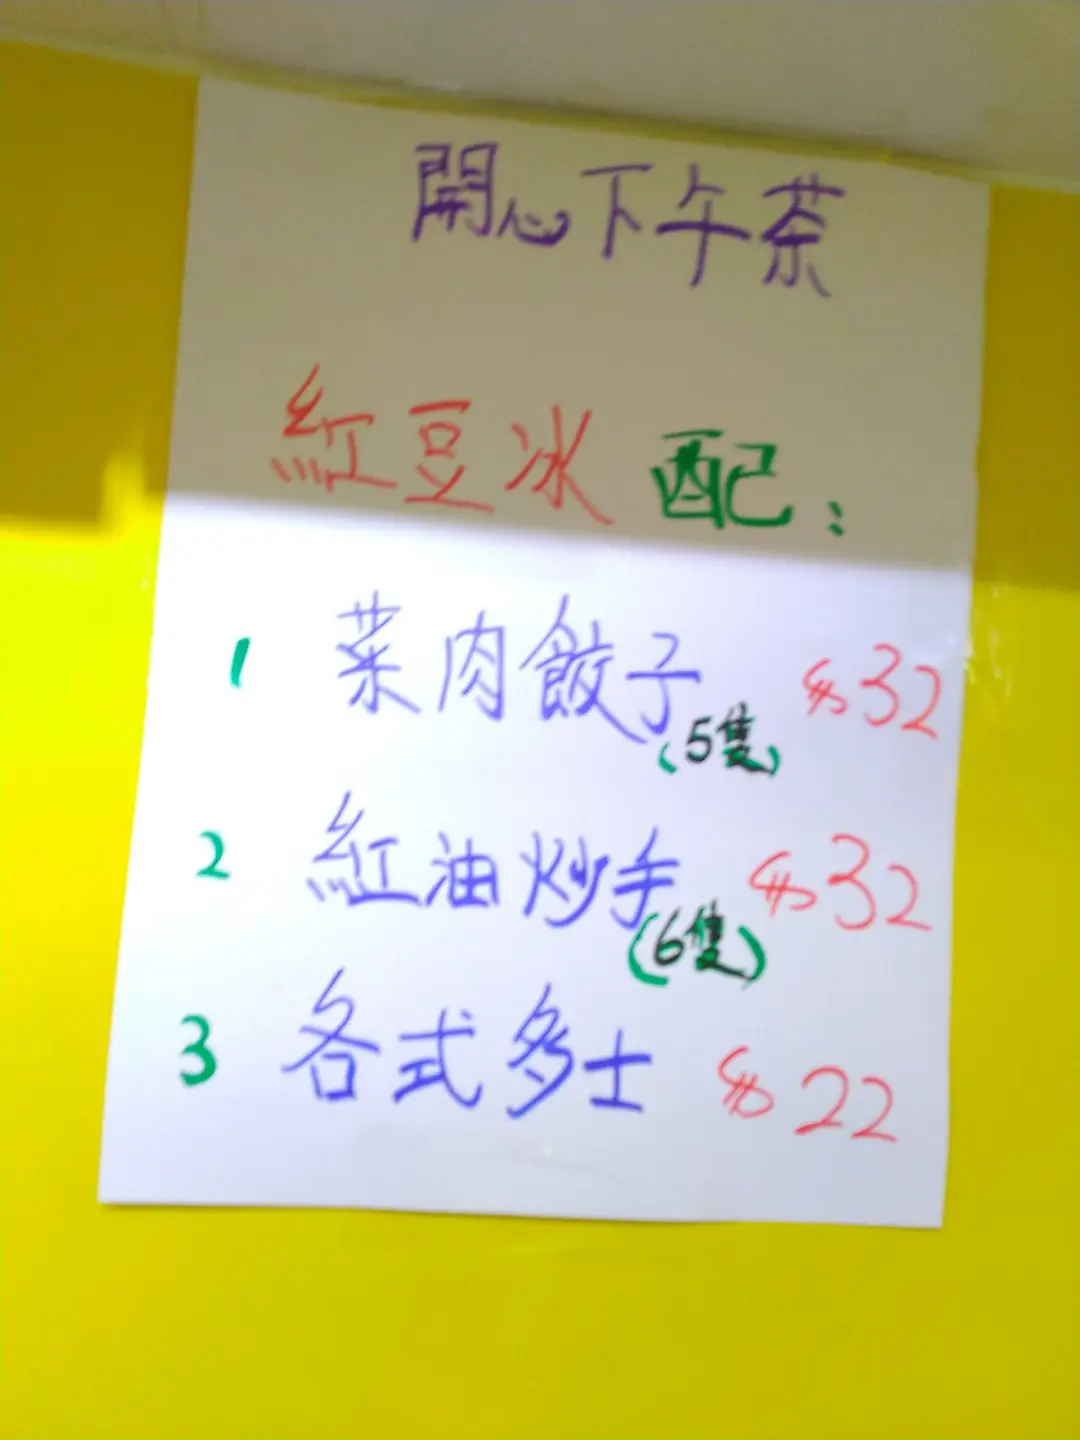 開心下午茶
紅豆冰 配：
1 菜肉餃子 (5隻) $32
2 紅油炒手 (6隻) $32
3 各式多士 $22